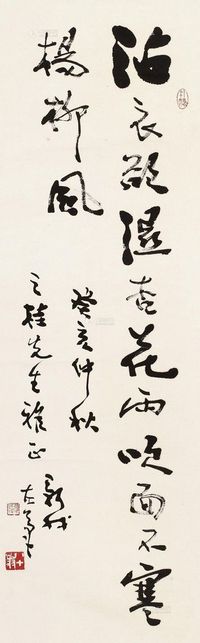 沾衣欲湿杏花雨吹面不寒
杨柳风
癸亥仲秋
之桂先生雅正